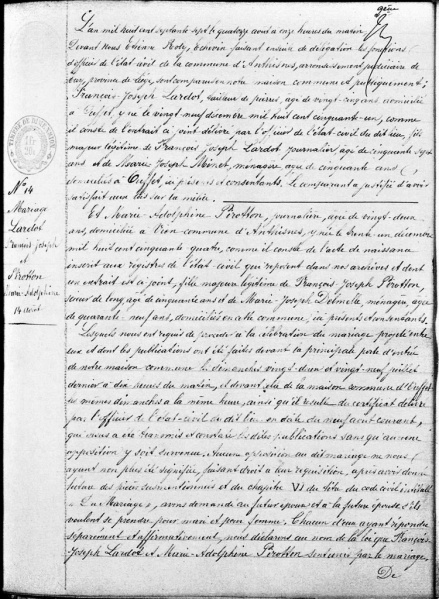 L'an mil huit cent septante sept le quatorze août a onze heures du matin
Devant Nous Etienne Body, échevin faisant ensuite de délégation les fonctions
d'officier de l'état civil de la commune d'Anthisnes, arrondissement judiciaire de
Huy, province de Liège, sont comparus en notre maison commune et publiquement ;
François Joseph Lardot, tailleur de pierres, agé de vingt-cinq ans domicilié
à né le vingt neuf décembre mil huit cent cinquante-un, comme
il conste de l'extrait ci joint délivré par l'officier de l'état civil du dit lieu, fils
majeur légitime de François Joseph Lardot journalier agé de cinquante sept
ans et de Marie Joseph ménagère agée de cinquante ans
domiciliés à ici présents et consentants. Le comparant a justifié d'avoir
satisfait aux lois sur la milice.
Et Marie-Adolphine Pirotton, journalière, agée de vingt-deux
ans, domiciliée à commune d'Anthisnes, y née le trente un décembre
mil huit cent cinquante quatre, comme il conste de l'acte de naissance
inscrit aux registres de l'état-civil qui reposent dans nos archives et dont
un extrait est ci joint, fille majeure légitime de François Joseph Pirotton,
de long agé de cinquante ans et de Marie Joseph Delmelle, ménagère, agée
de quarante-neuf ans, domiciliés en cette commune, ici présents et consentants.
Lesquels nous ont requis de procéder à la célébration du mariage projeté entre
eux et dont les publications ont été faites devant la principale porte d'entrée
de notre maison commune les dimanches vingt-deux et vingt-neuf juillet
dernier à dix heures du matin, et devant celle de la maison commune d'
les mêmes dimanches à la même heure, ainsi qu'il résulte du certificat délivré
par l'officier de l'état-civil du dit lieu en date du neuf août courant,
qui nous a été transmis et constate les dites publications sans qu'aucune
opposition y soit survenue. Aucune opposition au dit mariage ne nous
ayant non plus été signifiée, faisant droit à leur réquisition, après avoir donné
lecture des pièces susmentionnées et du chapitre VI du titre du code civil intitulé
« Du Mariage », avons demandé au futur époux et à la future épouse s'ils
veulent se prendre pour mari et pour femme : Chacun d'eux ayant répondu
séparément et affirmativement, nous déclarons au nom de la loi que François
Joseph Lardot et Marie-Adolphine Pirotton sont unis par le mariage.
De
N° 14
Mariage
Lardot
François Joseph
et
Pirotton
Marie-Adolphine
14 août